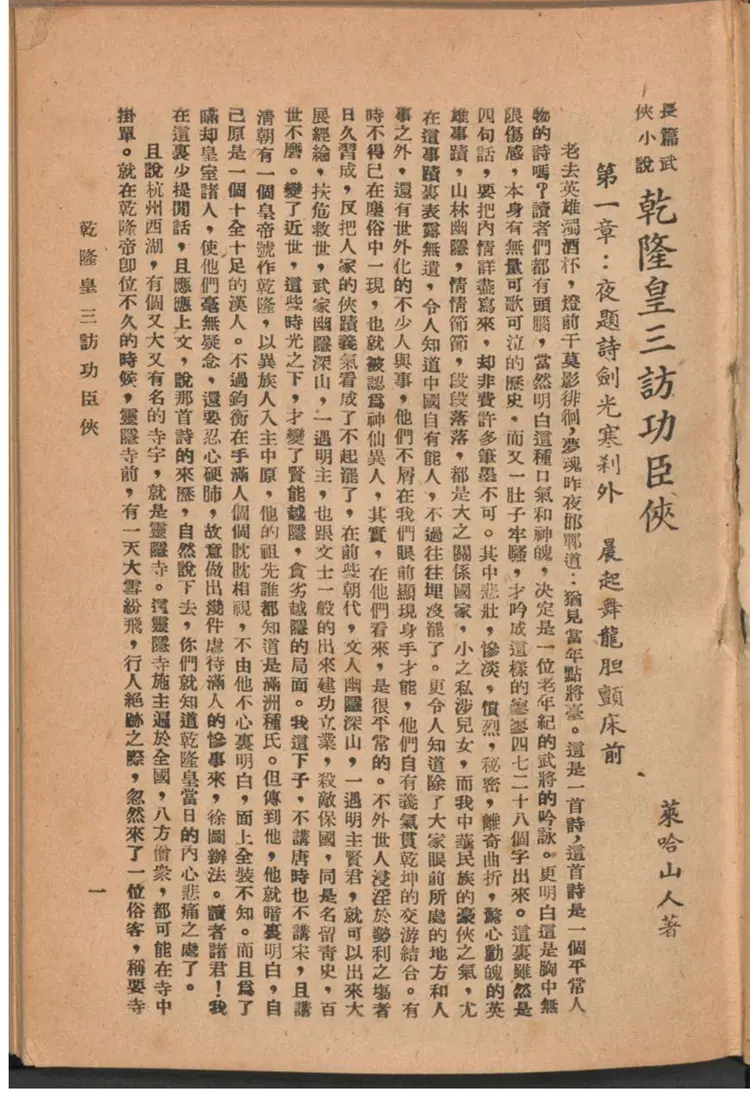 長篇武
俠小說
乾隆皇三訪功臣俠
萊哈山人著
第一章：夜題詩劍光寒刹外　晨起舞龍胆顫床前
老去英雄濁酒杯，燈前干莫影徘徊，夢魂昨夜邯鄲道：猶見當年點將臺。這是一首詩，這首詩是一個平常人
物的詩嗎？讀者們都有頭腦，當然明白這種口氣和神魄，决定是一位老年紀的武將的吟詠。更明白這是胸中無
限傷感，本身有無量可歌可泣的歷史，而又一肚子牢騷，才吟成這樣的寥寥四七二十八個字出來。這裏雖然是
四句話，要把內情詳盡寫來，却非費許多筆墨不可。其中悲壯，慘淡，憤烈，秘密，離奇曲折，驚心動魄的英
雄事蹟，山林幽隱，情情節節，段段落落，都是大之關係國家，小之私涉兒女，而我中華民族的豪俠之氣，尤
在這事蹟裏表露無遺，令人知道中國自有能人，不過往往埋沒罷了。更令人知道除了大家眼前所處的地方和人
事之外，還有世外化的不少人與事，他們不屑在我們眼前顯現身手才能，他們自有義氣貫乾坤的交游結合。有
時不得已在塵俗中一現，也就被認爲神仙異人，其實，在他們看來，是很平常的。不外世人浸淫於勢利之塲者
日久習成，反把人家的俠蹟義氣看成了不起罷了，在前些朝代，文人幽隱深山，一遇明主賢君，就可以出來大
展經綸，扶危救世，武家幽隱深山，一遇明主，也跟文士一般的出來建功立業，殺敵保國，同是名留靑史，百
世不磨。變了近世，這些時光之下，才變了賢能越隱，貪劣越隱的局面。我這下子，不講唐時也不講宋，且講
清朝有一個皇帝號作乾隆，以異族人入主中原，他的祖先誰都知道是滿洲種氏。但傳到他，他就暗裏明白，自
己原是一個十全十足的漢人。不過鈞衡在手滿人個個眈眈相視，不由他不心裏明白，面上全裝不知。而且爲了
瞞却皇室諸人，使他們毫無疑念，還要忍心硬肺，故意做出幾件虐待滿人的慘事來，徐圖辦法。讀者諸君！我
在這裏少提閒話，且應應上文，說那首詩的來歷，自然說下去，你們就知道乾隆皇當日的內心悲痛之處了。
且說杭州西湖，有個又大又有名的寺宇，就是靈隱寺。這靈隱寺施主遍於全國，八方僧衆，都可能在寺中
掛單。就在乾隆帝卽位不久的時候，靈隱寺前，有一天大雪紛飛，行人絕跡之際，忽然來了一位俗客，稱要寺
乾隆皇三訪功臣俠
一